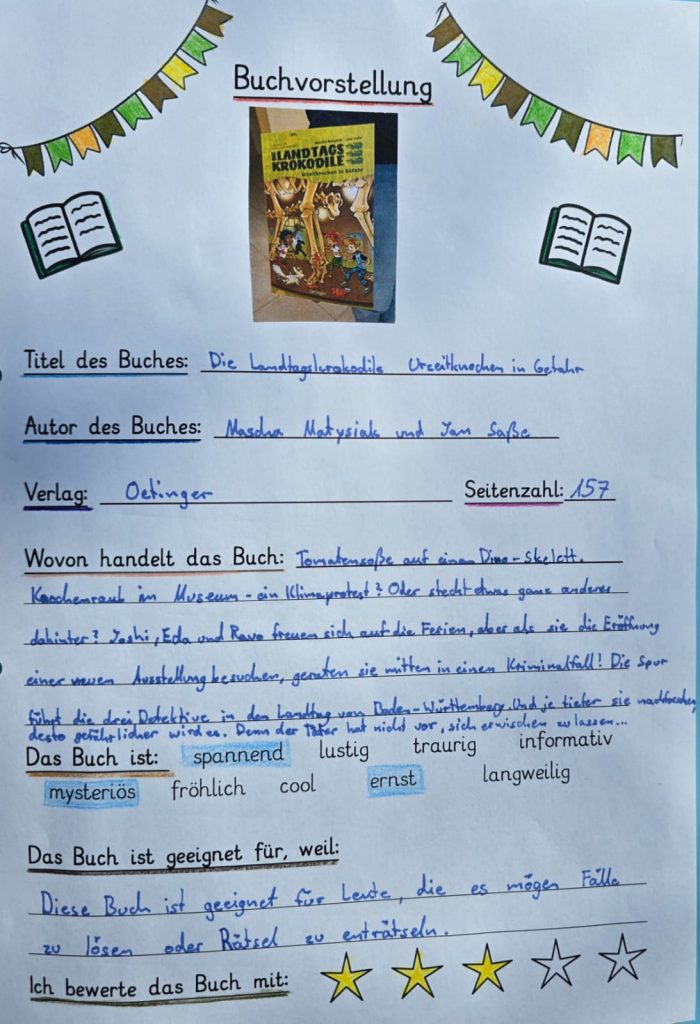 Buchvorstellung
DIE LANDTAGS
KROKODILE
Urzeitknochen in Gefahr
Titel des Buches: Die Landtagskrokodile Urzeitknochen in Gefahr
Autor des Buches: Mascha Matysiak und Jan Saße
Verlag: Oetinger Seitenzahl: 157
Wovon handelt das Buch: Tomatensoße auf einem Dino-Skelett.
Knochenraub im Museum - ein Klimaprotest? Oder steckt etwas ganz anderes
dahinter? Joshi, Eda und Ravo freuen sich auf die Ferien, aber als sie die Eröffnung
einer neuen Ausstellung besuchen, geraten sie mitten in einen Kriminalfall! Die Spur
führt die drei Detektive in den Landtag von Baden-Württemberg. Und je tiefer sie nachforschen,
desto gefährlicher wird es. Denn der Täter hat nicht vor, sich erwischen zu lassen...
Das Buch ist: spannend lustig traurig informativ
mysteriös fröhlich cool ernst langweilig
Das Buch ist geeignet für, weil:
Diese Buch ist geeignet für Leute, die es mögen Fälle
zu lösen oder Rätsel zu enträtseln.
Ich bewerte das Buch mit: